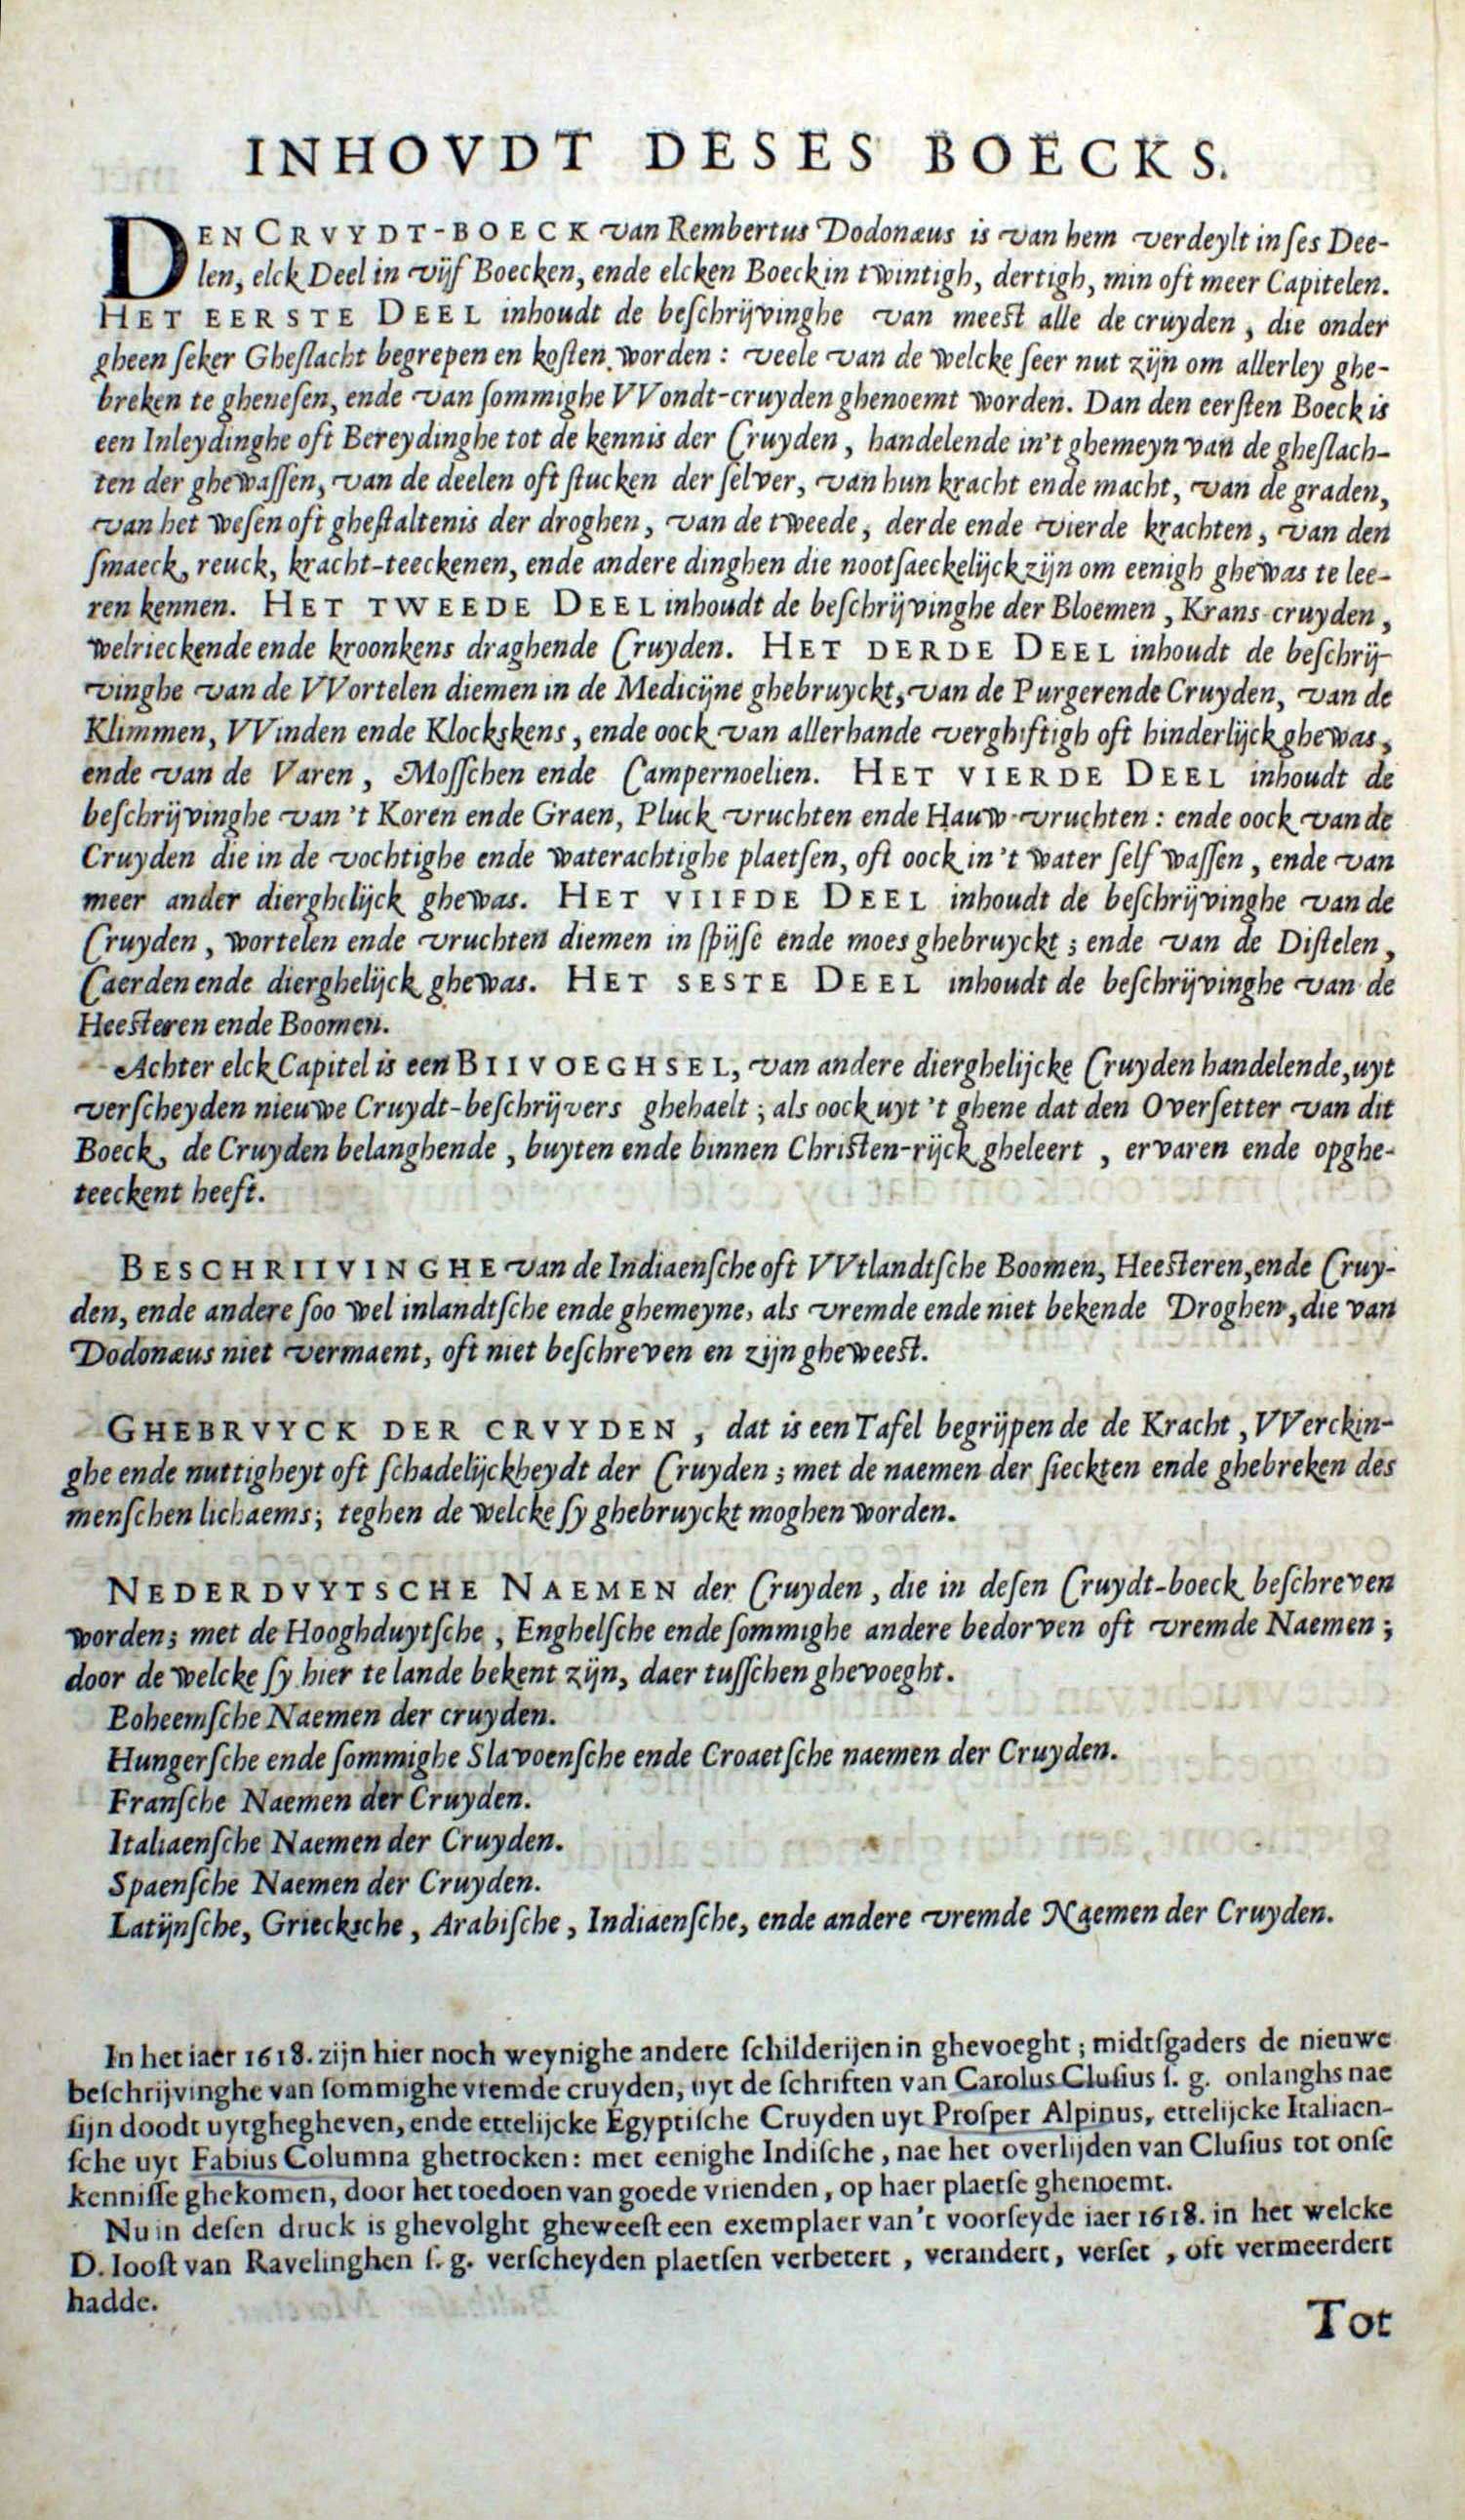 INHOVDT DESES BOECKS.
DEN CRVYDT-BOECK van Rembertus Dodonæus is van hem verdeylt in ſes Dee-
len, elck Deel in vijf Boecken, ende elcken Boeck in twintigh, dertigh, min oft meer Capitelen.
HET EERSTE DEEL inhoudt de beſchrijvinghe van meest alle de cruyden, die onder
gheen ſeker Gheſlacht begrepen en koſten worden: veele van de welcke ſeer nut zijn om allerley ghe-
breken te gheneſen, ende van ſommighe VVondt-cruyden ghenoemt worden. Dan den eerſten Boeck is
een Inleydinghe oft Bereydinghe tot de kennis der Cruyden, handelende in't ghemeyn van de gheſlach-
ten der ghewaſſen, van de deelen oft ſtucken der ſelver, van hun kracht ende macht, van de graden,
van het weſen oft gheſtaltenis der droghen, van de tweede, derde ende vierde krachten, van den
ſmaeck, reuck, kracht-teeckenen, ende andere dinghen die nootſaeckelijck zijn om eenigh ghewas te lee-
ren kennen. HET TWEEDE DEEL inhoudt de beſchrijvinghe der Bloemen, Krans-cruyden,
welrieckende ende kroonkens draghende Cruyden. HET DERDE DEEL inhoudt de beſchrij-
vinghe van de VVortelen diemen in de Medicijne ghebruyckt, van de Purgerende Cruyden, van de
Klimmen, VVinden ende Klockskens, ende oock van allerhande verghiftigh oft hinderlijck ghewas,
ende van de Varen, Moſſchen ende Campernoelien. HET VIERDE DEEL inhoudt de
beſchrijvinghe van 't Koren ende Graen, Pluck-vruchten ende Hauw-vruchten: ende oock van de
Cruyden die in de vochtighe ende waterachtighe plaetſen, oft oock in 't water ſelf waſſen, ende van
meer ander dierghelijck ghewas. HET VIIFDE DEEL inhoudt de beſchrijvinghe van de
Cruyden, wortelen ende vruchten diemen in ſpijſe ende moes ghebruyckt; ende van de Diſtelen,
Caerden ende dierghelijck ghewas. HET SESTE DEEL inhoudt de beſchrijvinghe van de
Heesteren ende Boomen.
Achter elck Capitel is een BIIVOEGHSEL, van andere dierghelijcke Cruyden handelende, uyt
verſcheyden nieuwe Cruydt-beſchrijvers ghehaelt; als oock uyt 't ghene dat den Overſetter van dit
Boeck, de Cruyden belanghende, buyten ende binnen Christen-rijck gheleert, ervaren ende opghe-
teeckent heeft.
BESCHRIIVINGHE van de Indiaenſche oft VVtlandtſche Boomen, Heesteren, ende Cruy-
den, ende andere ſoo wel inlandtſche ende ghemeyne, als vremde ende niet bekende Droghen, die van
Dodonæus niet vermaent, oft niet beſchreven en zijn gheweest.
GHEBRVYCK DER CRVYDEN, dat is een Tafel begrijpende de Kracht, VVerckin-
ghe ende nuttigheyt oft ſchadelijckheydt der Cruyden; met de naemen der ſieckten ende ghebreken des
menſchen lichaems; teghen de welcke ſy ghebruyckt moghen worden.
NEDERDVYTSCHE NAEMEN der Cruyden, die in deſen Cruydt-boeck beſchreven
worden; met de Hooghduytſche, Enghelſche ende ſommighe andere bedorven oft vremde Naemen;
door de welcke ſy hier te lande bekent zijn, daer tuſſchen ghevoeght.
Boheemſche Naemen der cruyden.
Hungerſche ende ſommighe Slavoenſche ende Croaetſche naemen der Cruyden.
Franſche Naemen der Cruyden.
Italiaenſche Naemen der Cruyden.
Spaenſche Naemen der Cruyden.
Latijnſche, Griecksche, Arabiſche, Indiaenſche, ende andere vremde Naemen der Cruyden.
In het iaer 1618. zijn hier noch weynighe andere ſchilderijen in ghevoeght; midtſgaders de nieuwe
beſchrijvinghe van ſommighe vremde cruyden, uyt de ſchriften van Carolus Cluſius ſ. g. onlanghs nae
ſijn doodt uytghegheven, ende ettelijcke Egyptiſche Cruyden uyt Proſper Alpinus, ettelijcke Italiaen-
ſche uyt Fabius Columna ghetrocken: met eenighe Indiſche, nae het overlijden van Cluſius tot onſe
kenniſſe ghekomen, door het toedoen van goede vrienden, op haer plaetſe ghenoemt.
Nu in deſen druck is ghevolght gheweeſt een exemplaer van't voorſeyde iaer 1618. in het welcke
D. Iooſt van Ravelinghen ſ. g. verſcheyden plaetſen verbetert, verandert, verſet, oft vermeerdert
hadde.
Tot